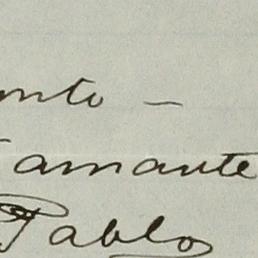 onto —
amante
Pablo